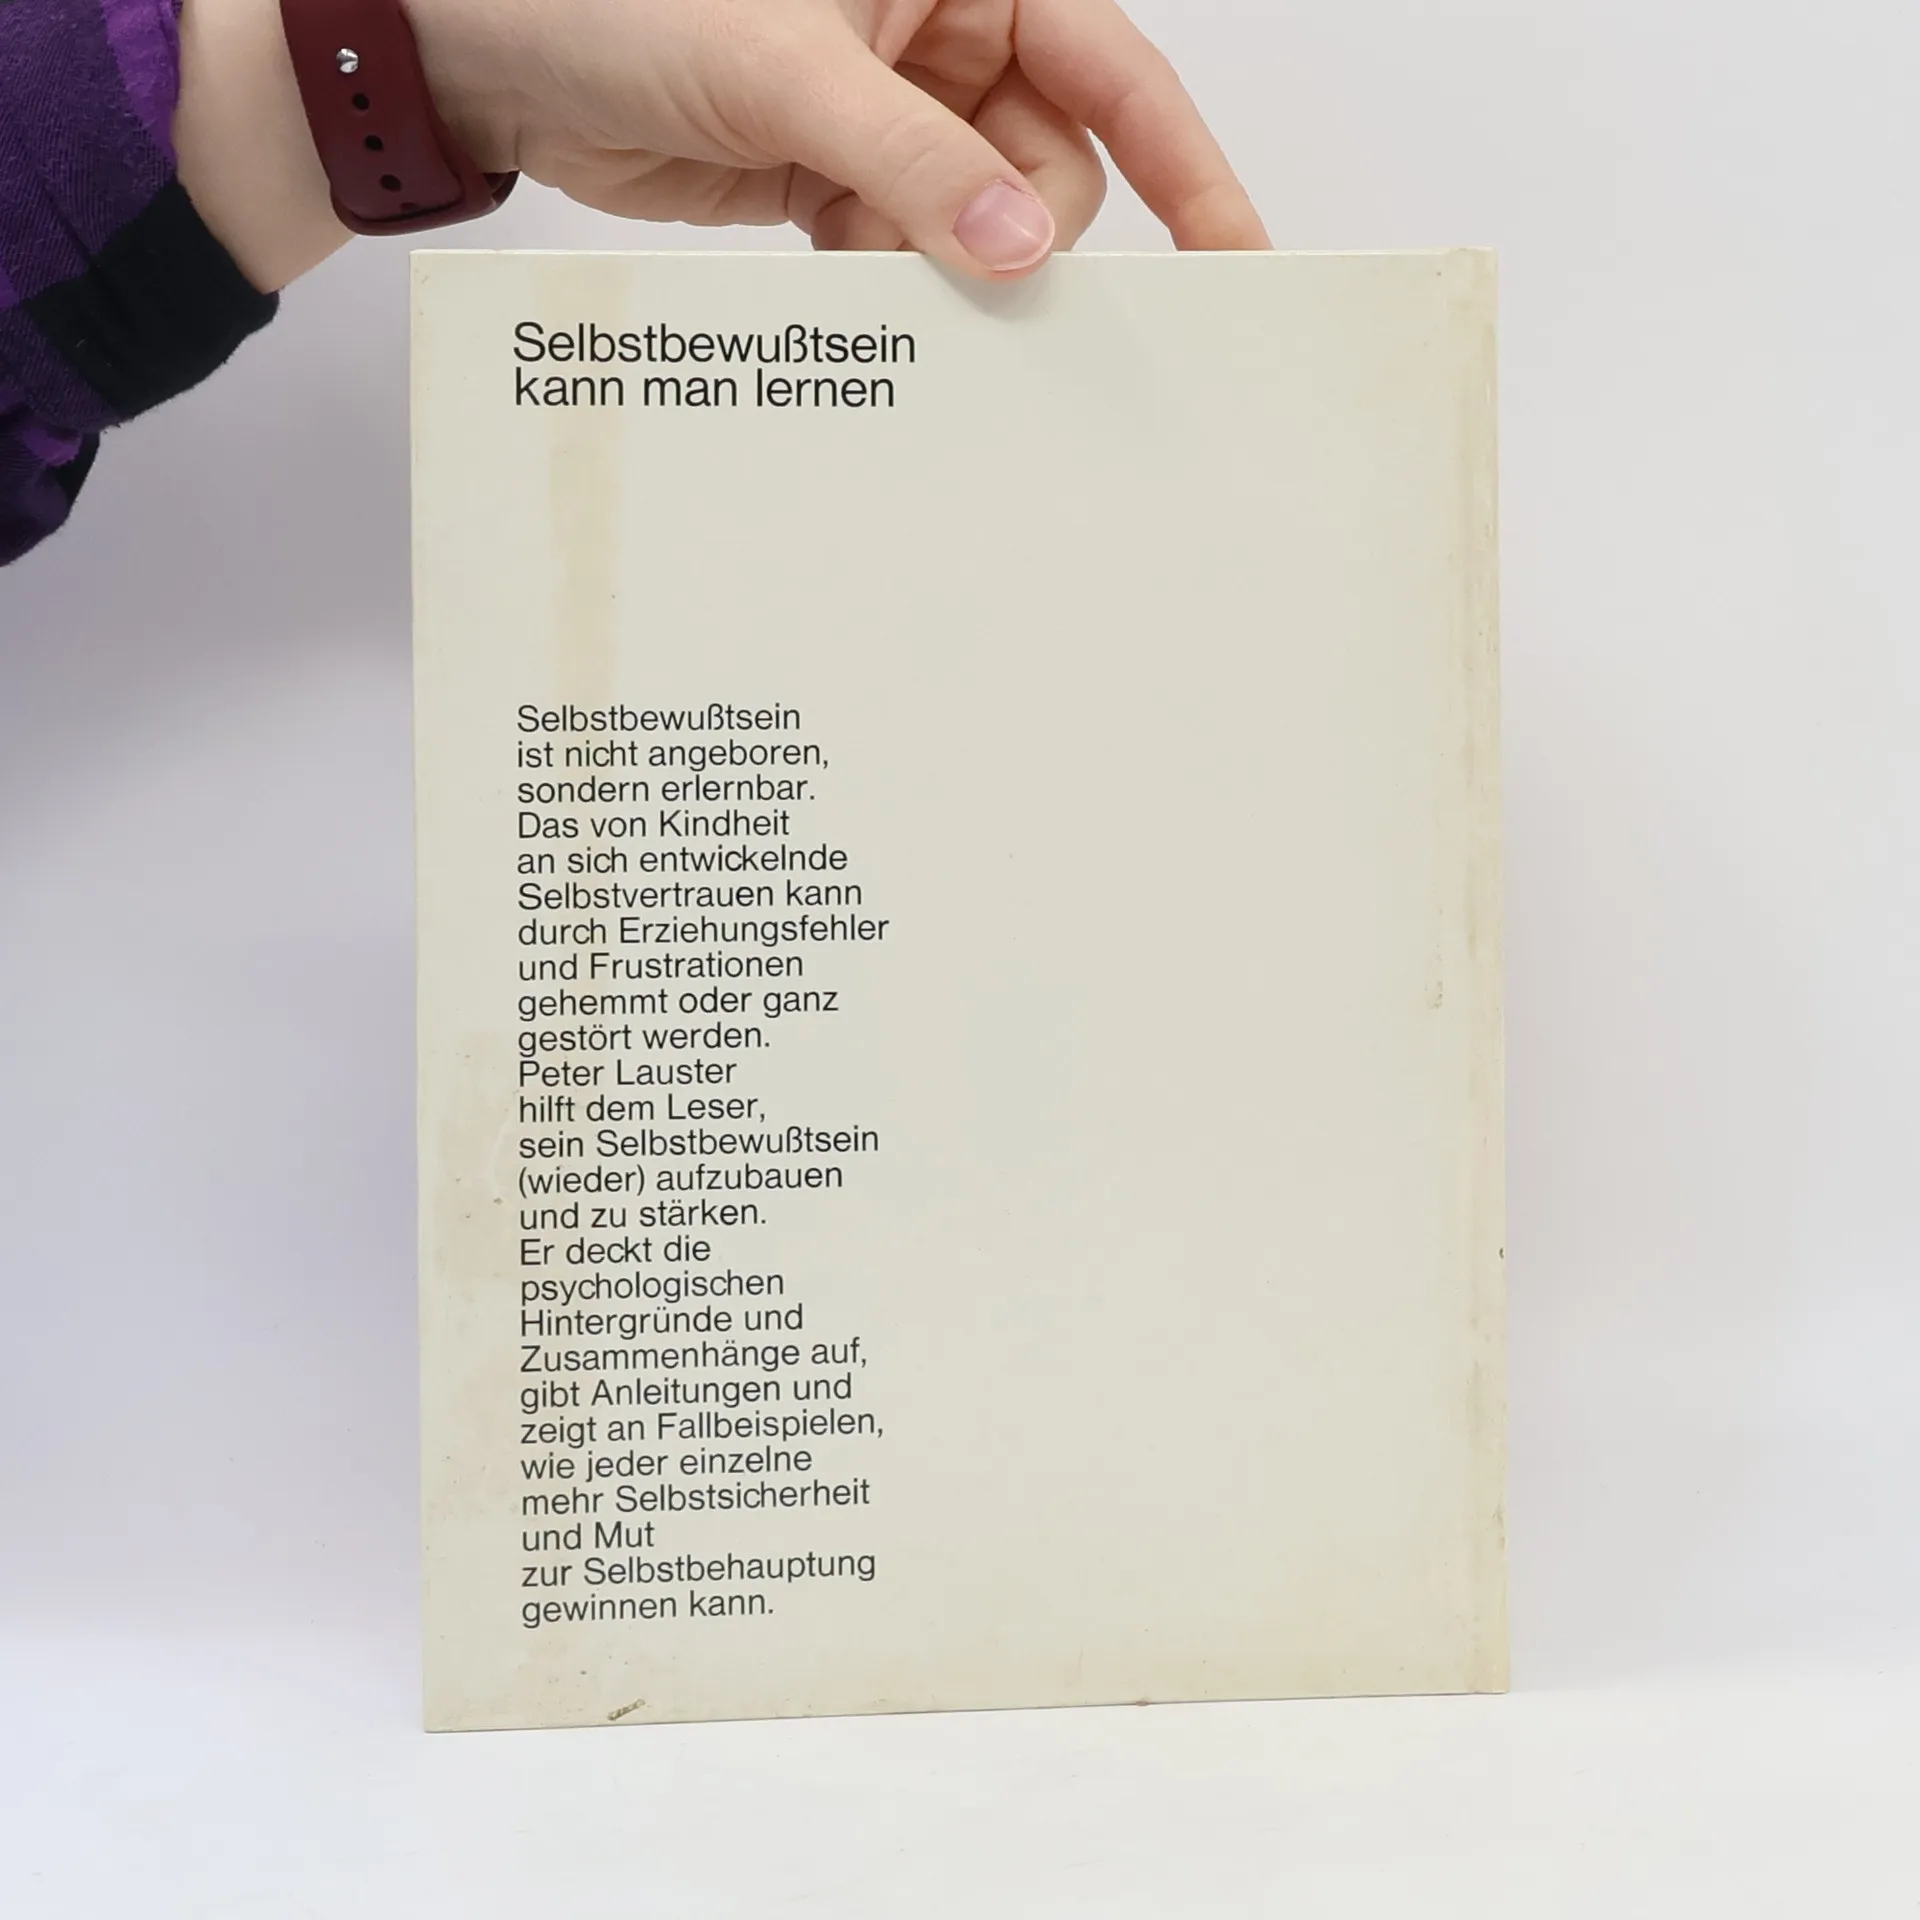 Selbstbewußtsein
kann man lernen
Selbstbewußtsein
ist nicht angeboren,
sondern erlernbar.
Das von Kindheit
an sich entwickelnde
Selbstvertrauen kann
durch Erziehungsfehler
und Frustrationen
gehemmt oder ganz
gestört werden.
Peter Lauster
hilft dem Leser,
sein Selbstbewußtsein
(wieder) aufzubauen
und zu stärken.
Er deckt die
psychologischen
Hintergründe und
Zusammenhänge auf,
gibt Anleitungen und
zeigt an Fallbeispielen,
wie jeder einzelne
mehr Selbstsicherheit
und Mut
zur Selbstbehauptung
gewinnen kann.